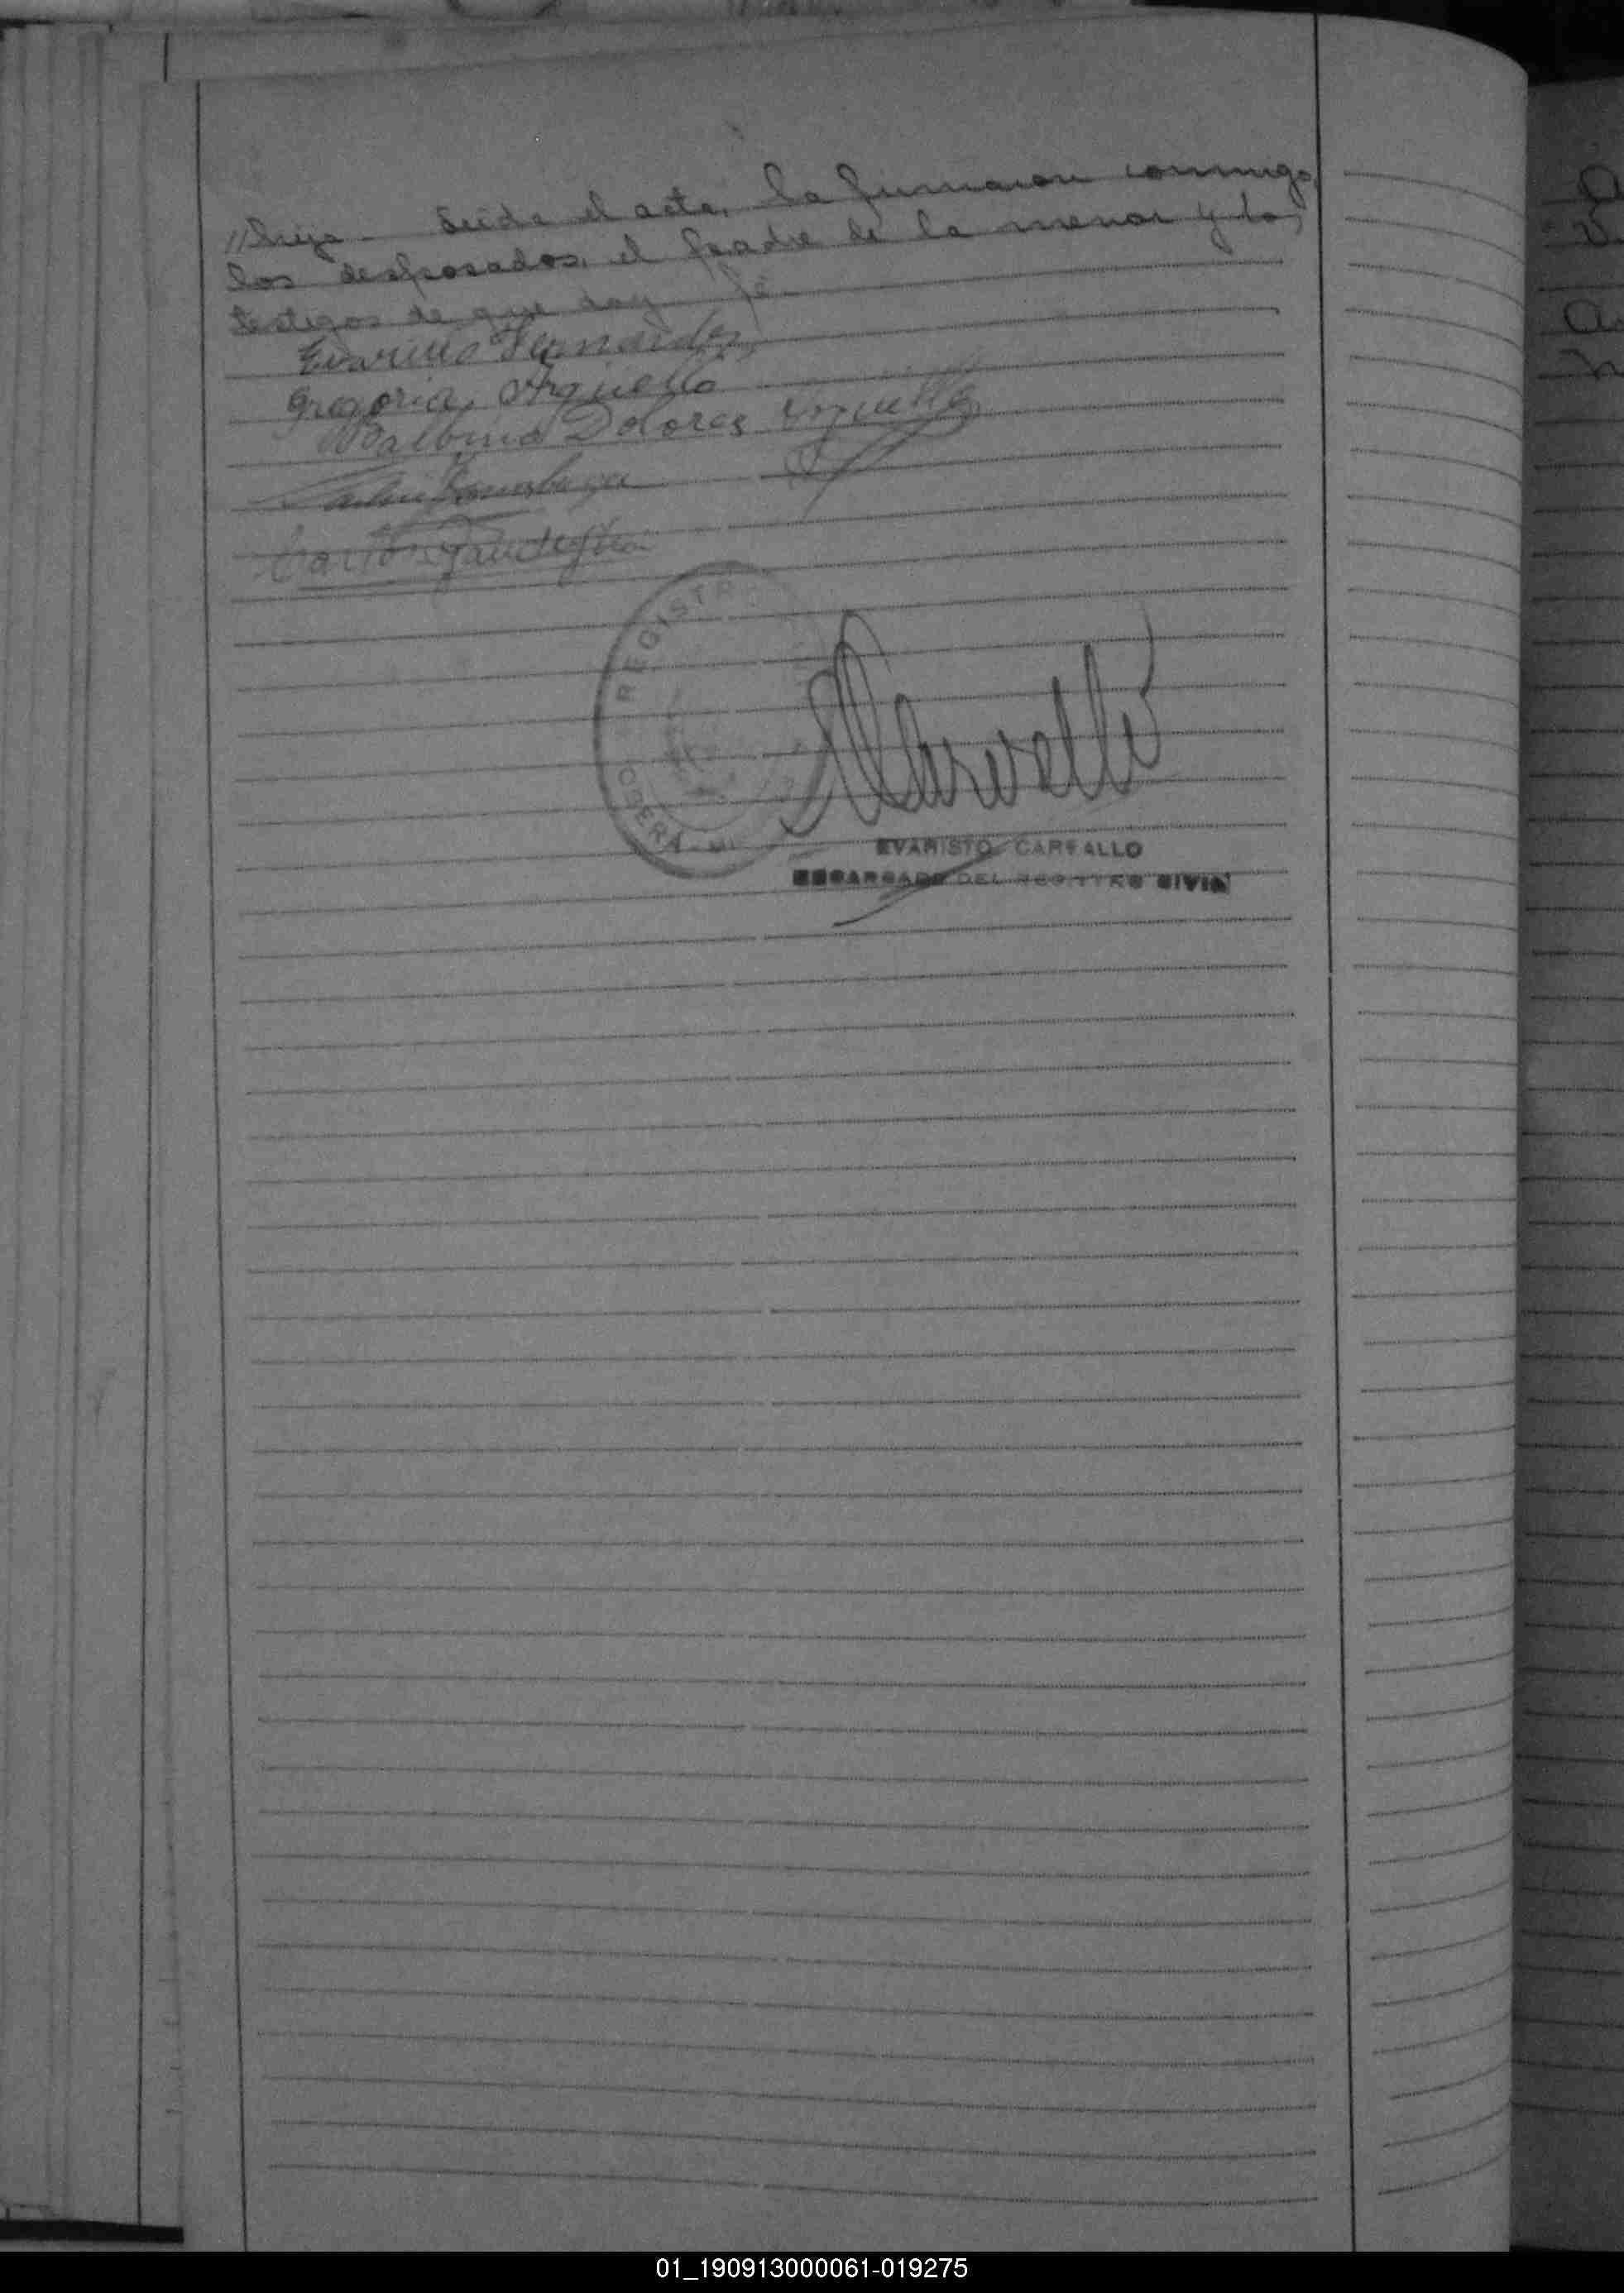 //hija. Leida el acta, la firmaron conmigo,
los desposados, el padre de la menor y los
testigos de que doy fé.
Evaristo Fernandez
Gregoria Arguello
Balbino Dolores Arguello
Carlos
REGISTR
OBERA - MI
EVARISTO CARVALLO
ENCARGADO DEL REGISTRO CIVIL
01_190913000061-019275